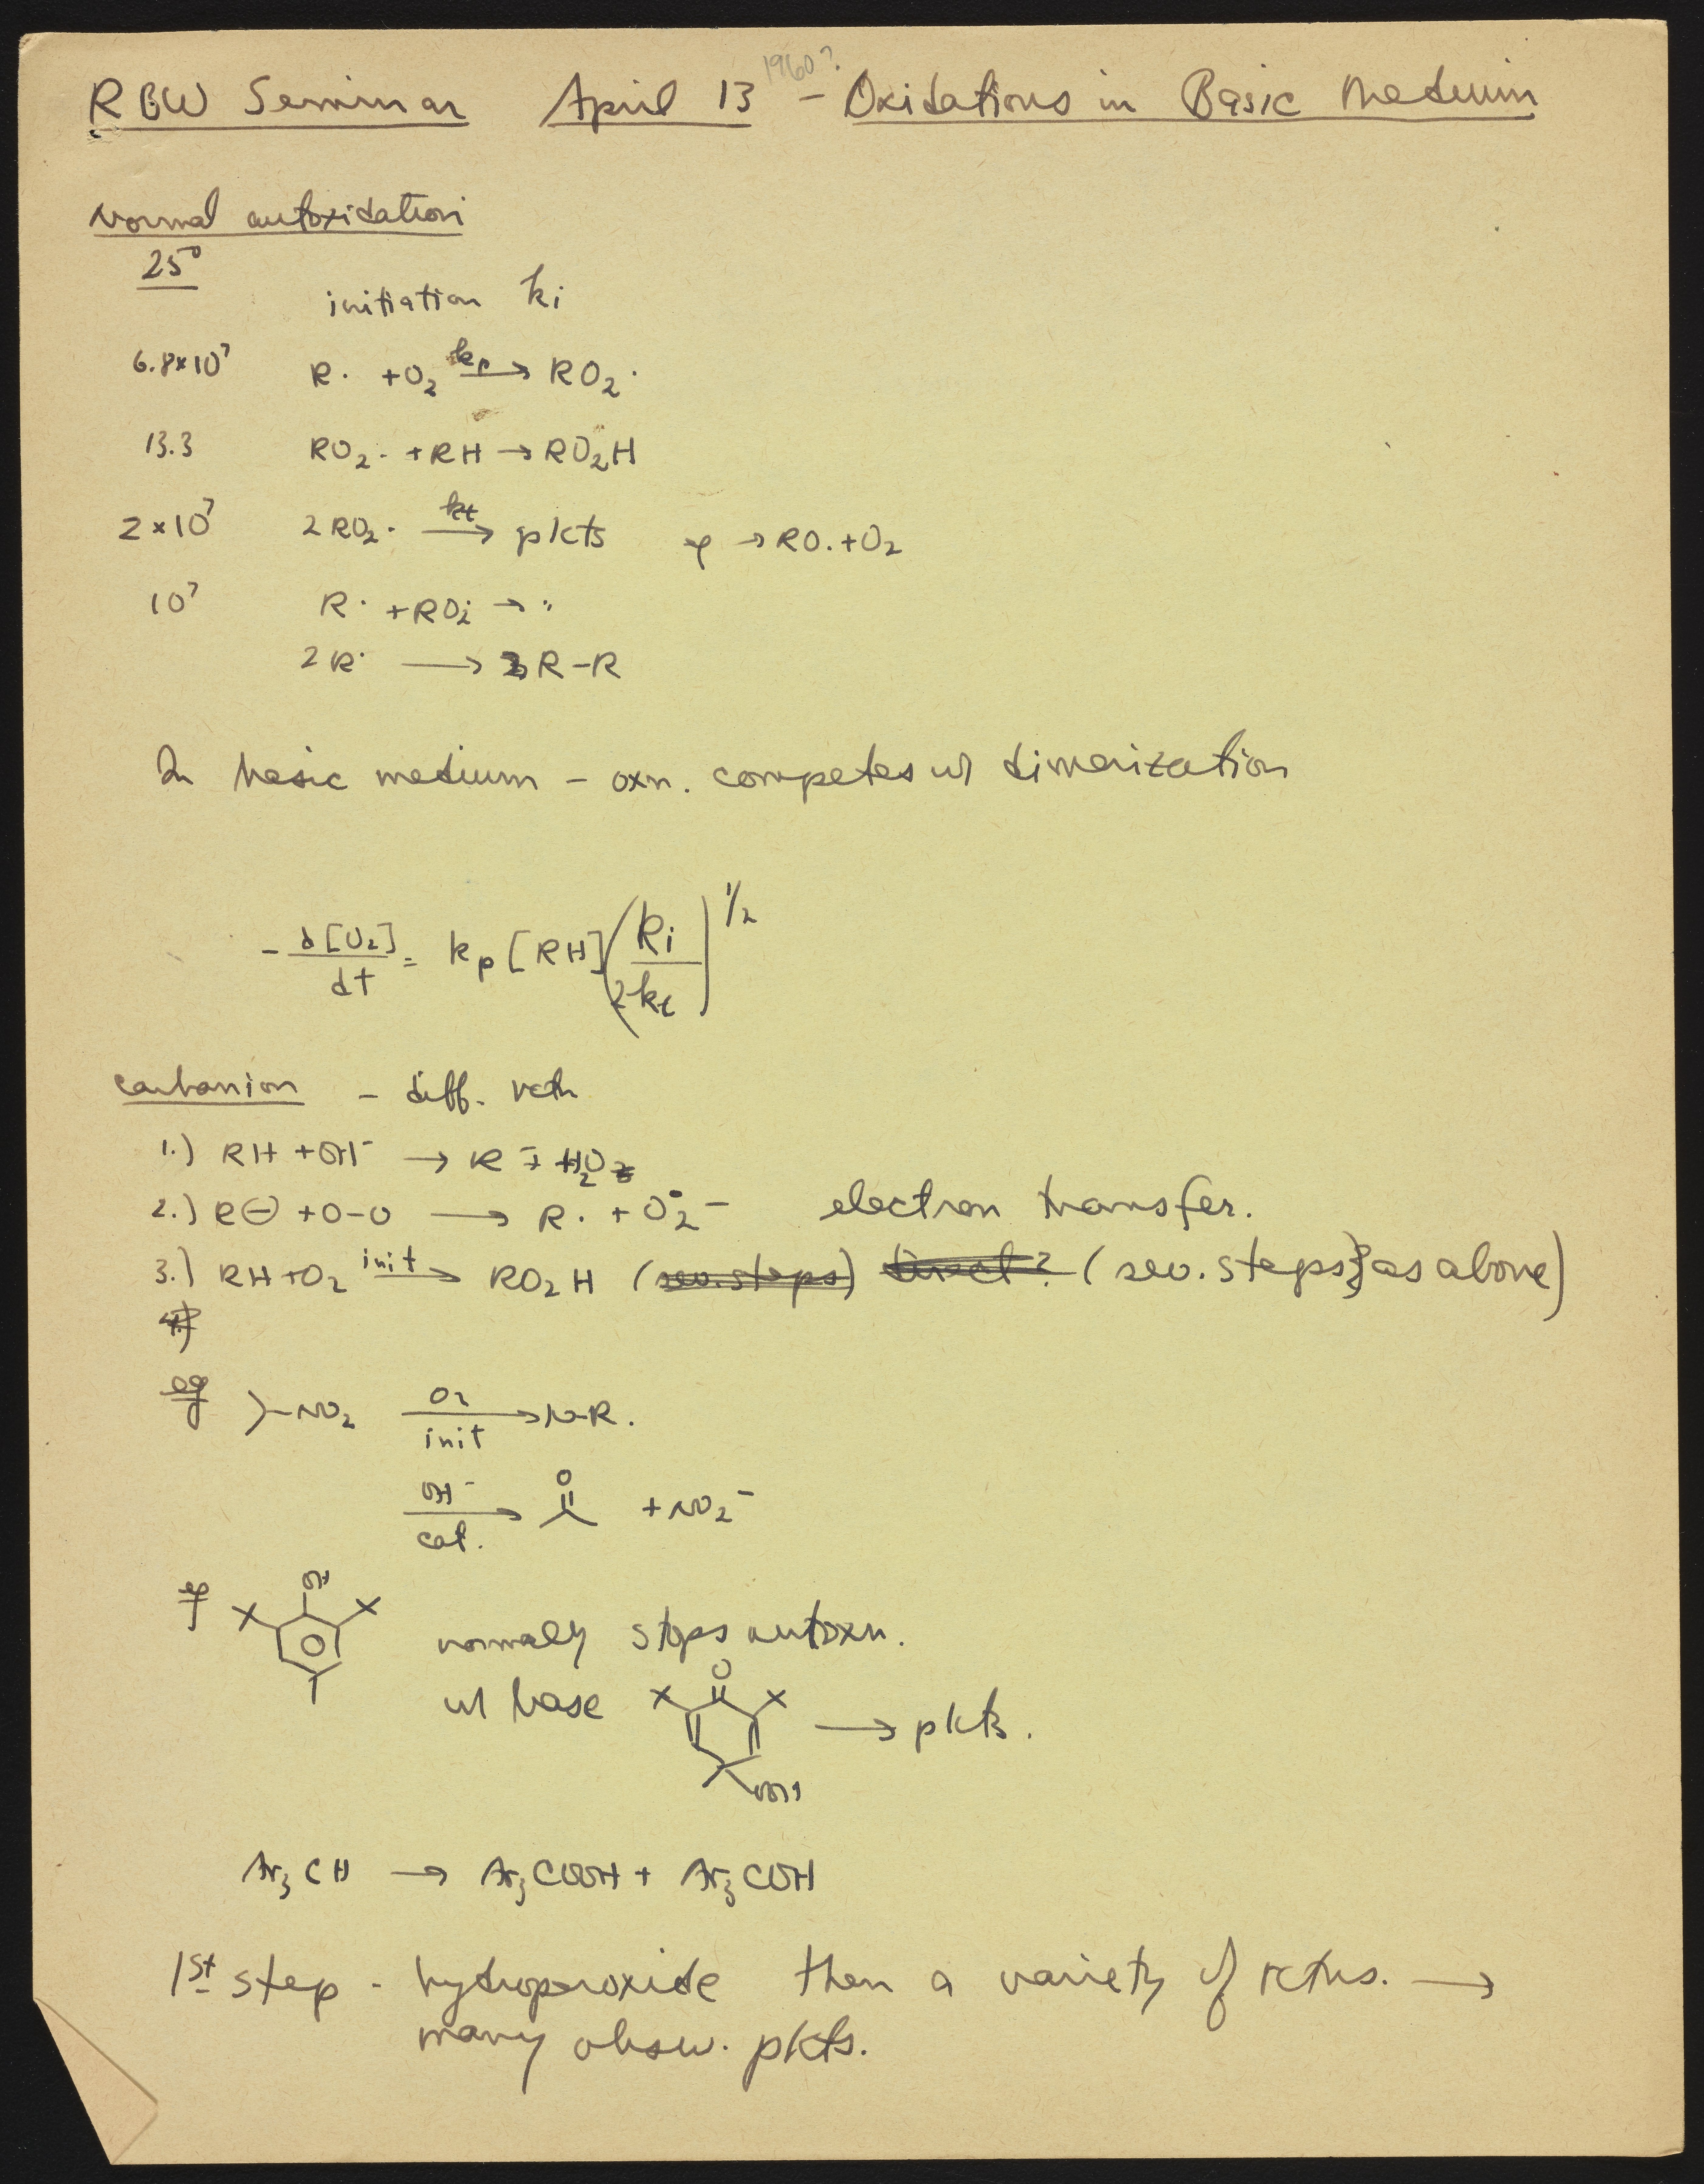 1960?
RBW Seminar April 13 - Oxidations in Basic Medium
Normal autoxidation
25°
initiation ki
6.8×10⁷ R· + O₂ kp→ RO₂·
13.3 RO₂· + RH → RO₂H
2×10⁷ 2RO₂· kt→ pdcts → RO· + O₂
10⁷ R· + RO₂· → "
2R· → R-R
In basic medium - oxn. competes w/ dimerization
- d[O₂]/dt = kp [RH] (Ri/2kt)^1/2
carbanion - diff. rctn
1.) RH + OH⁻ → R⁻ + H₂O
2.) R⊖ + O-O → R· + O₂·⁻ electron transfer.
3.) RH + O₂ init→ RO₂H (sev. steps) direct? (sev. steps as above)
4.)
eg >-NO₂ O₂/init→ N.R.
OH⁻/cat. → O + NO₂⁻
eg OH
normally stops autoxn.
w/ base O OOH → pdcts.
Ar₃CH → Ar₃COOH + Ar₃COH
1st step - hydroperoxide then a variety of rctns. →
many obsv. pdcts.